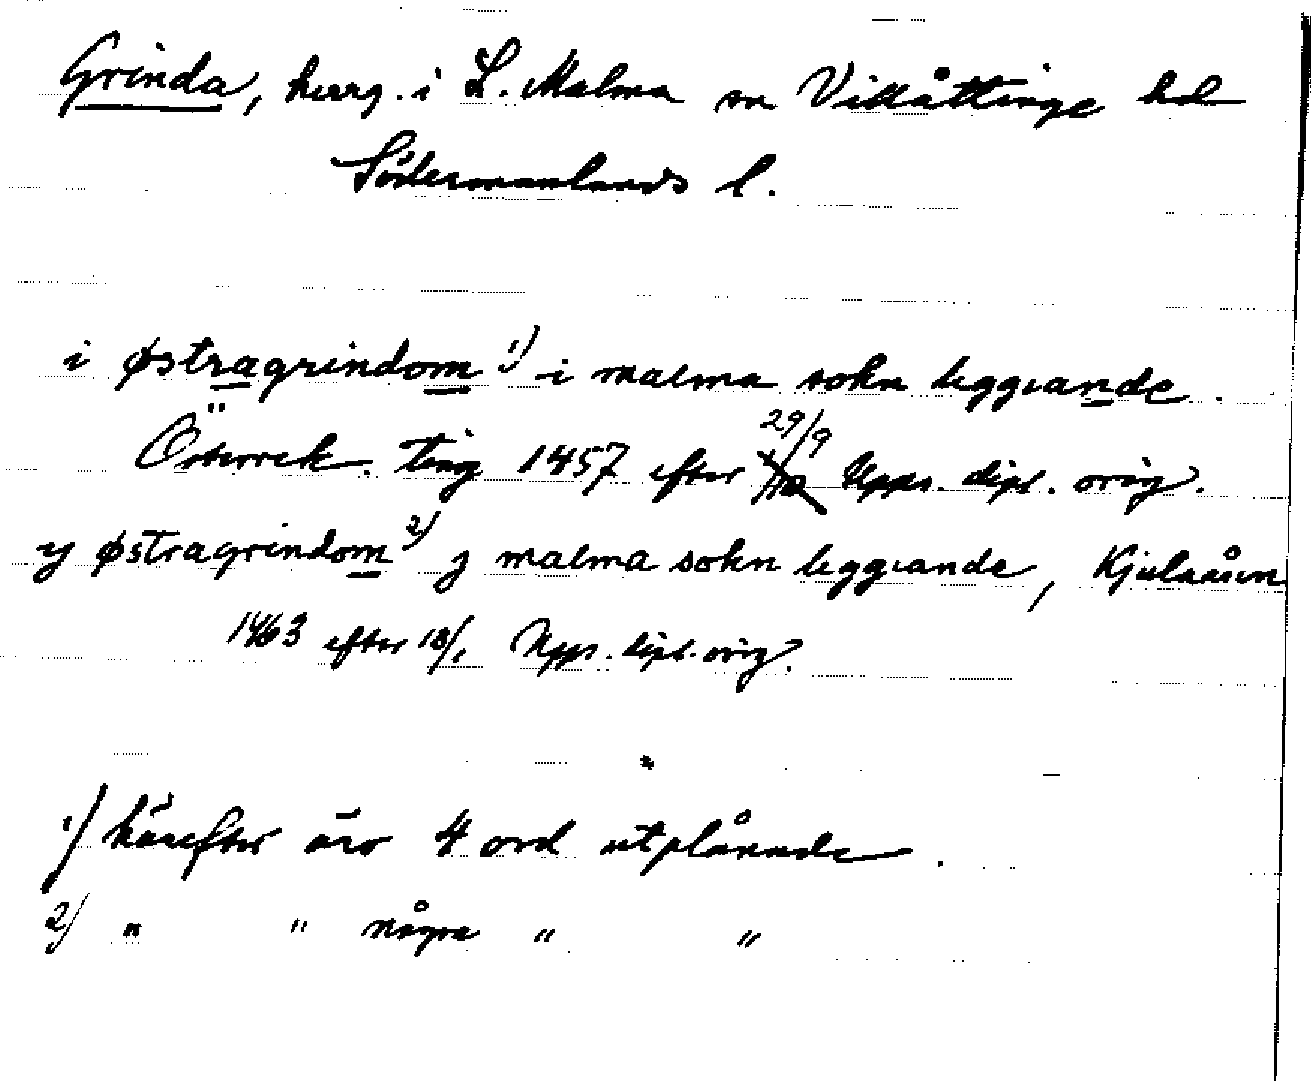 Grinda, herrg. i L. Malma sn Villåttinge hd
Södermanlands l.
i østragrindom 1) i malma sokn leggiande.
Österrek. ting 1457 efter 29/9 Upps. dipl. orig.
ij østragrindom 2) j malma sokn leggiande, Kjulaåsen
1463 efter 18/1 Upps. dipl. orig.
1) härefter äro 4 ord utplånade.
2) " " några " "